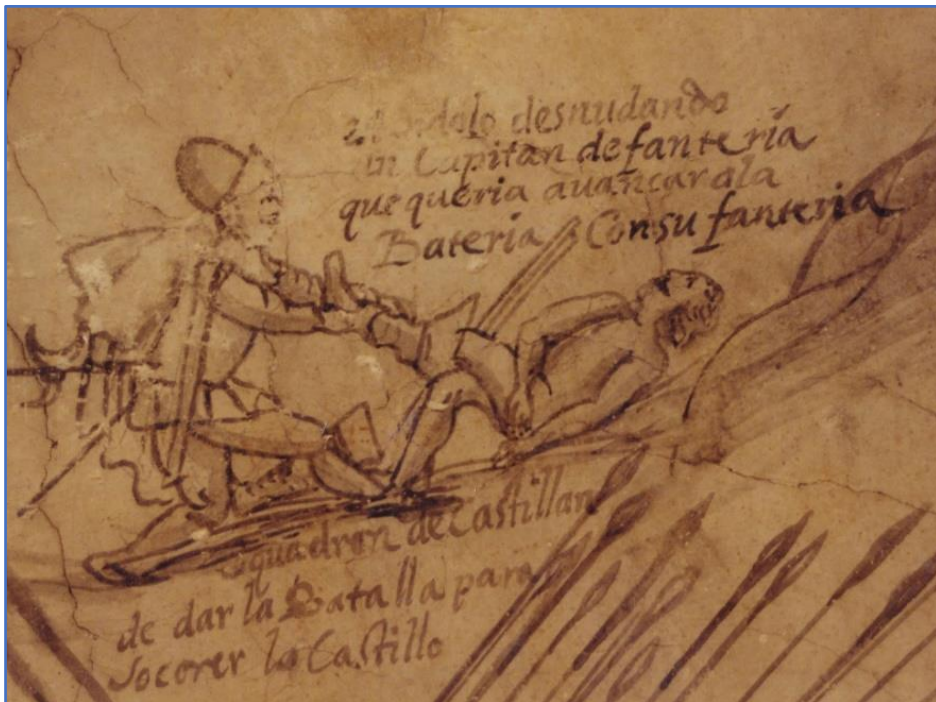 desnudando
un Capitan de fanteria
que queria auançar a la
Bateria Con su fanteria
squadron de Castillan
de dar la Batalla para
socorer la Castillo